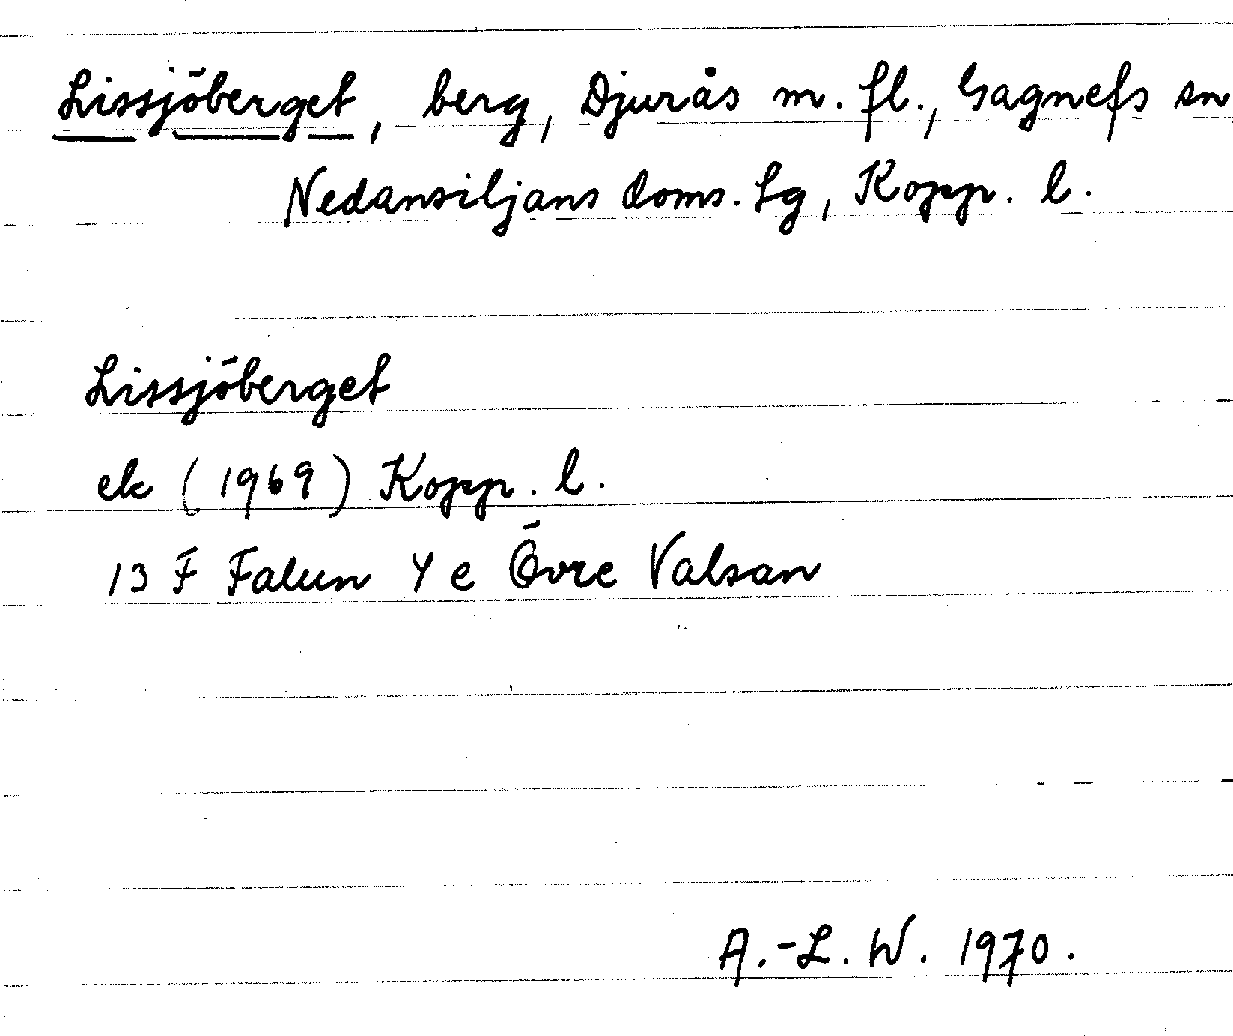 Lissjöberget, berg, Djurås m. fl., Gagnefs sn
Nedansiljans doms. lg, Kopp. l.
Lissjöberget
ek (1969) Kopp. l.
13 F Falun 4 e Övre Valsan
A.-L. W. 1970.